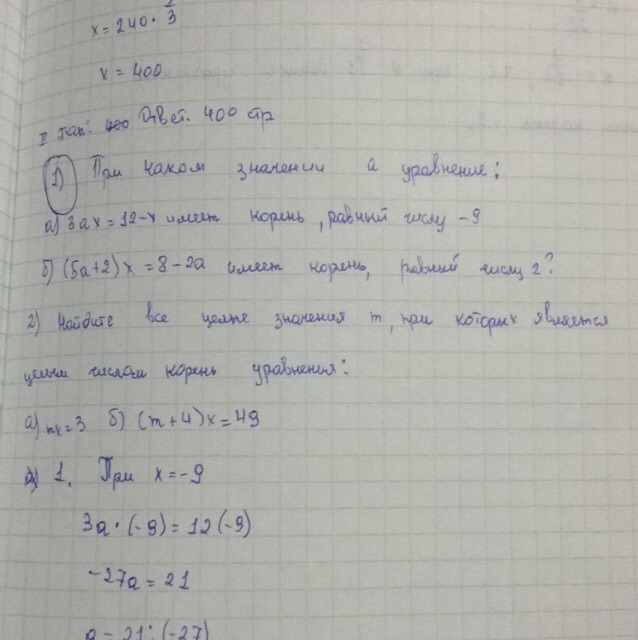 x = 240 · 2/3
x = 400
Ответ. 400 стр
1) При каком значении a уравнение:
а) 3ax = 12 - x имеет корень, равный числу -9
б) (5a+2)x = 8 - 2a имеет корень, равный числу 2?
2) Найдите все целые значения m, при которых является
целым числом корень уравнения:
а) mx = 3 б) (m+4)x = 49
1. При x = -9
3a · (-9) = 12 (-9)
-27a = 21
a = 21 : (-27)